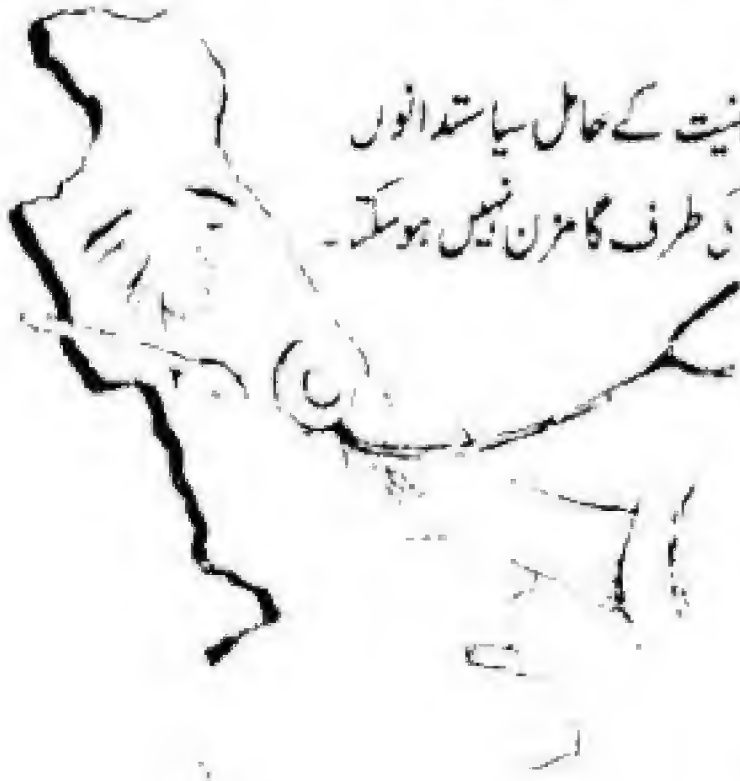 کے حامل سیاستدانوں
طرف گامزن نہیں ہو سکتے۔